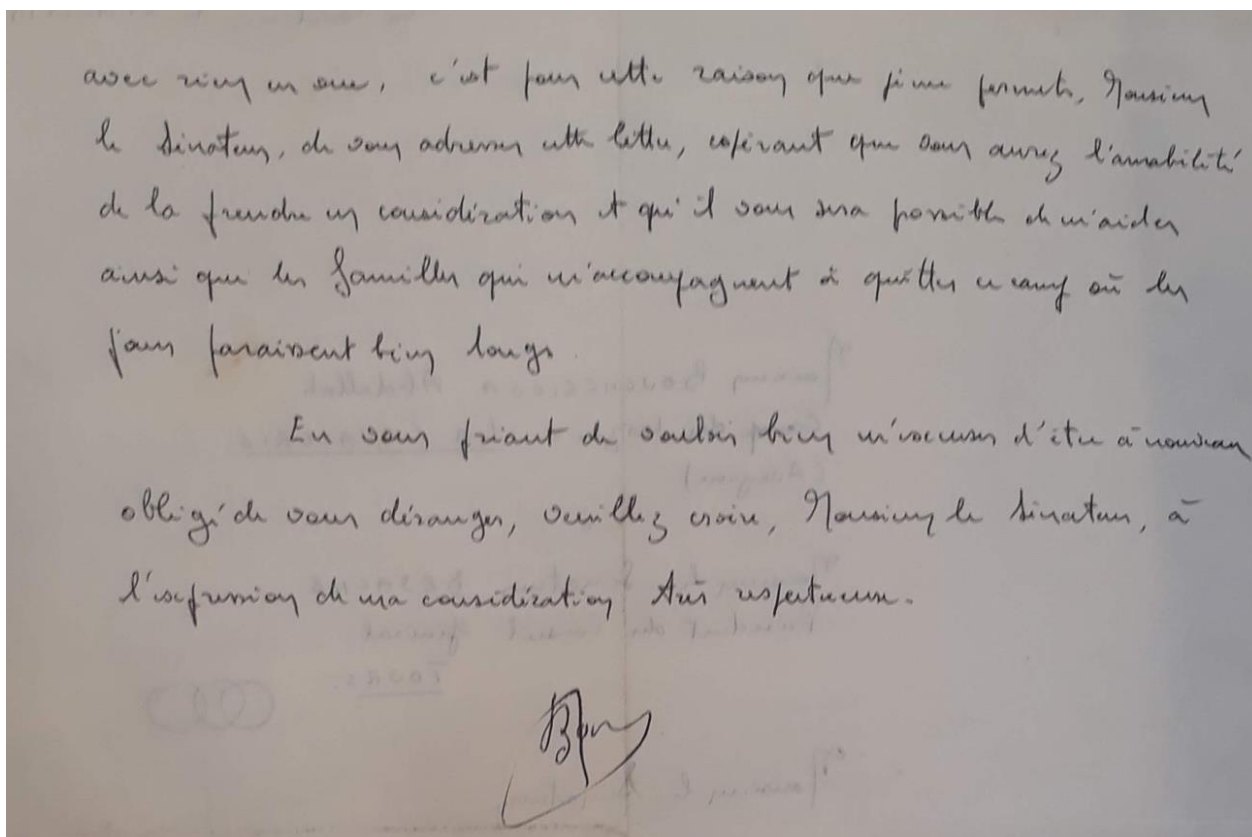 avec rien en vue, c'est pour cette raison que je me permets, Monsieur
le Sénateur, de vous adresser cette lettre, espérant que vous aurez l'amabilité
de la prendre en considération et qu'il vous sera possible de m'aider
ainsi que les familles qui m'accompagnent à quitter ce camp où les
jours paraissent bien longs.
En vous priant de vouloir bien m'excuser d'être à nouveau
obligé de vous déranger, veuillez croire, Monsieur le Sénateur, à
l'expression de ma considération très respectueuse.